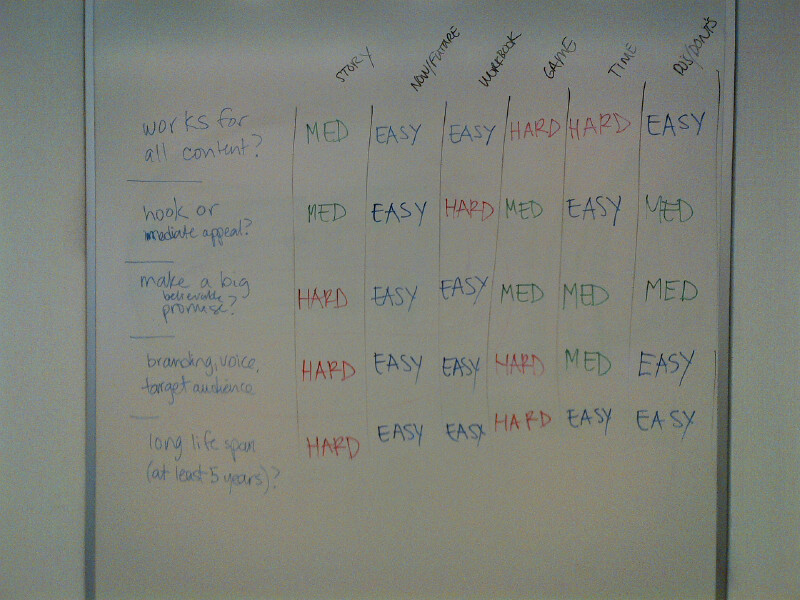 STORY NOW/FUTURE WORKBOOK GAME TIME DOS/DONTS
works for
all content?
MED EASY EASY HARD HARD EASY
hook or
immediate appeal?
MED EASY HARD MED EASY MED
make a big
believable
promise?
HARD EASY EASY MED MED MED
branding, voice,
target audience
HARD EASY EASY HARD MED EASY
long life span
(at least 5 years)?
HARD EASY EASY HARD EASY EASY